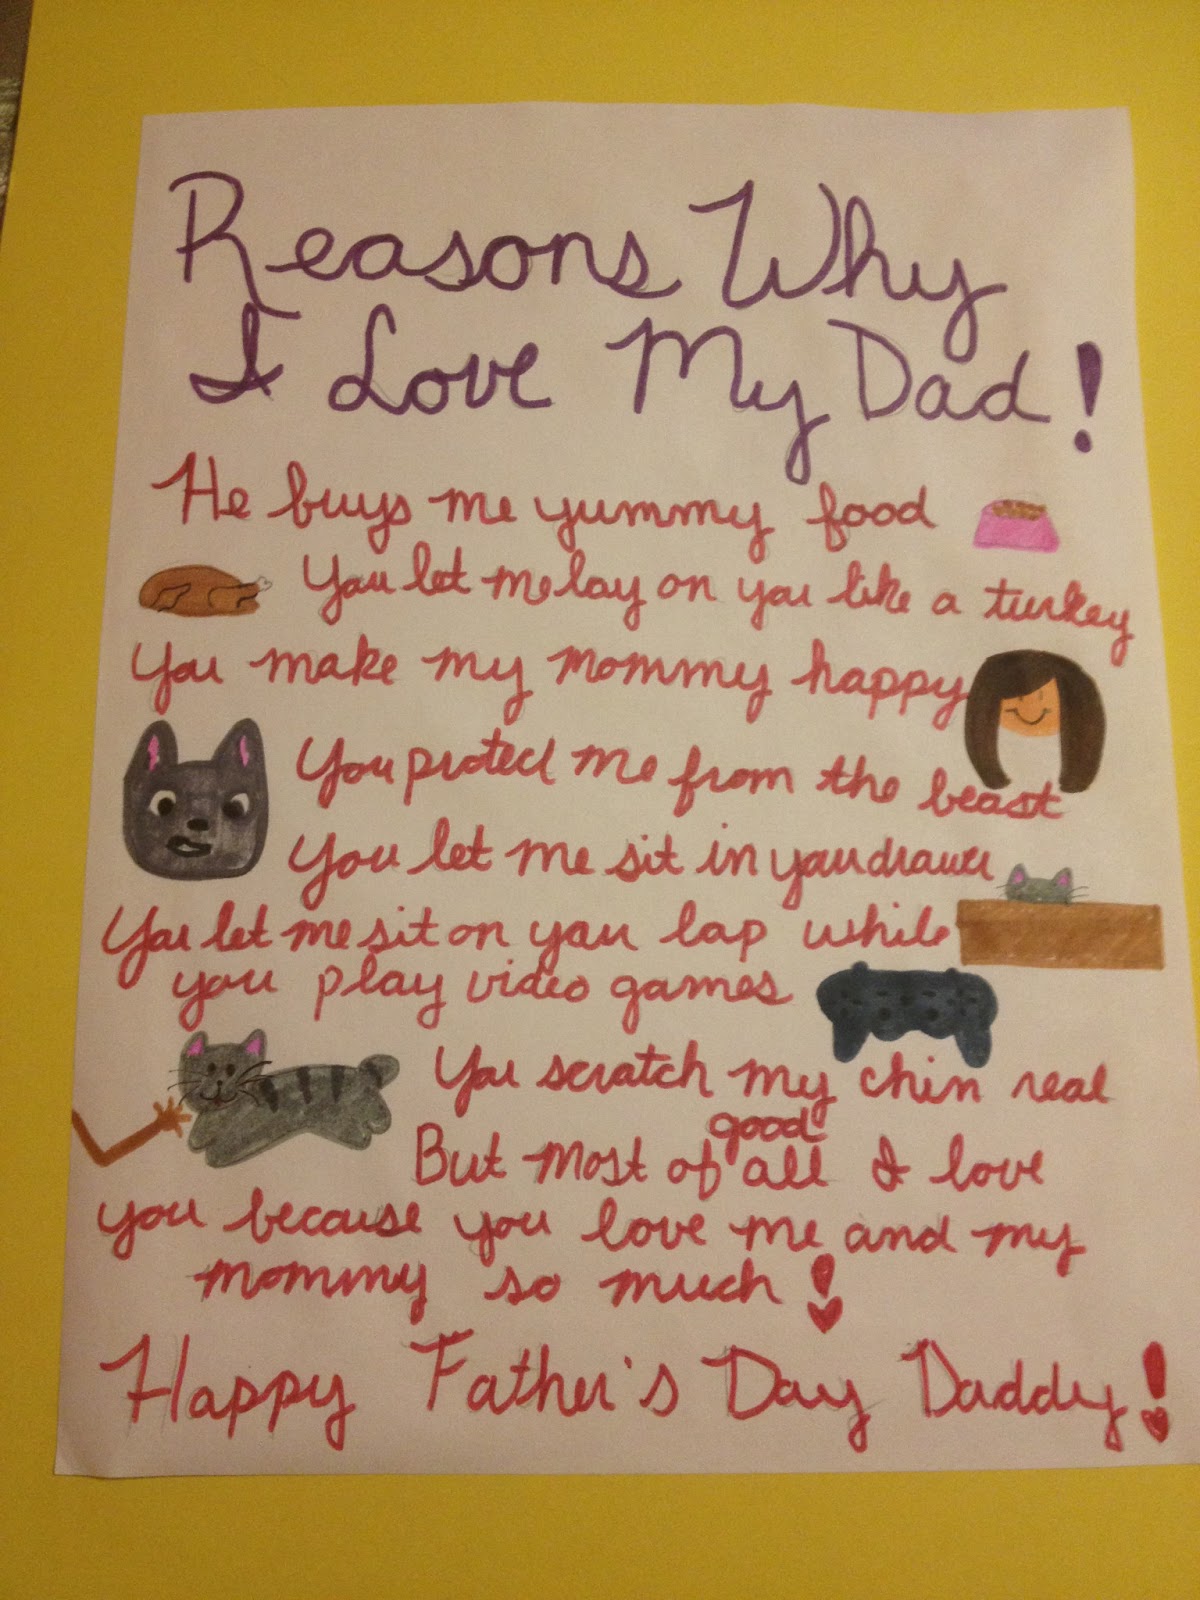 Reasons Why
I Love My Dad!
He buys me yummy food
You let me lay on you like a turkey
You make my mommy happy
You protect me from the beast
You let me sit in your drawer
You let me sit on your lap while
you play video games
You scratch my chin real
good
But most of all I love
you because you love me and my
mommy so much!
Happy Father's Day Daddy!